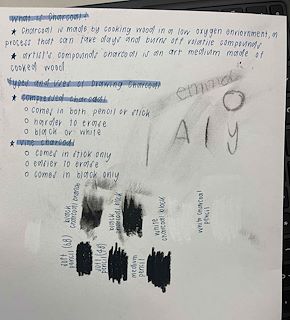 What is Charcoal?
★ Charcoal is made by cooking wood in a low oxygen environment, a
process that can take days and burns off volatile compounds
★ artist's compounds charcoal is an art medium made of
cooked wood
Types and Uses of Drawing Charcoal
★ Compressed charcoal
○ comes in both pencil or stick
○ harder to erase
○ black or white
★ Vine charcoal
○ comes in stick only
○ easier to erase
○ comes in black only
emma
black
charcoal
black
charcoal
white
charcoal block
white charcoal
pencil
soft
pencil (6B)
soft
pencil (4B)
medium
pencil